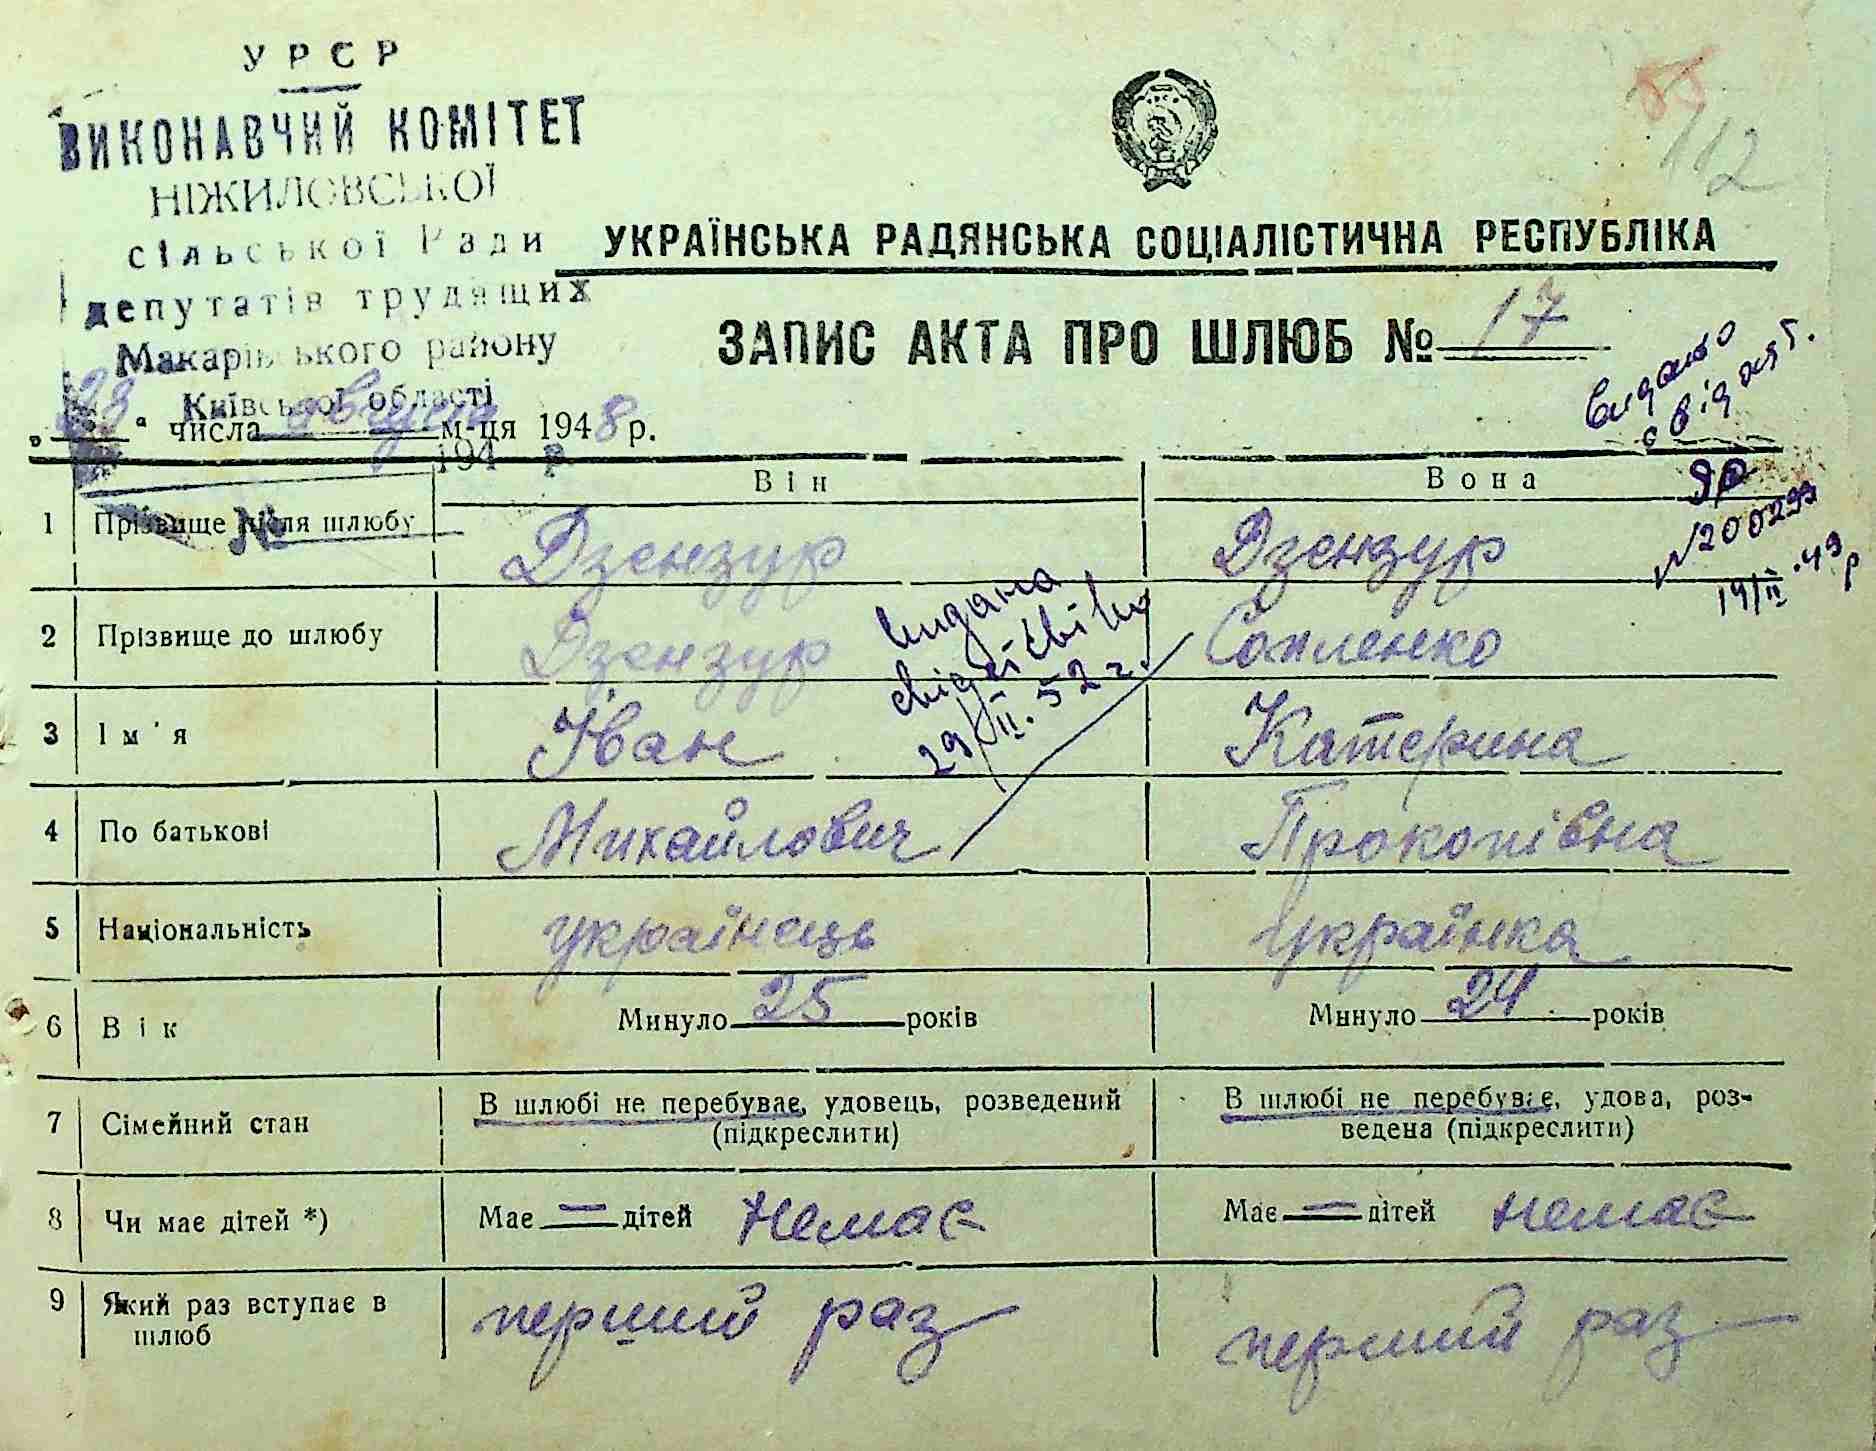 УРСР
ВИКОНАВЧИЙ КОМІТЕТ
НІЖИЛОВСЬКОЇ
сільської Ради
депутатів трудящих
Макарівського району
Київської області
55
112
УКРАЇНСЬКА РАДЯНСЬКА СОЦІАЛІСТИЧНА РЕСПУБЛІКА
ЗАПИС АКТА ПРО ШЛЮБ № 17
„28“ числа августа м-ця 1948 р.
194 р.
№
Видано
свідоцт.
ЯР
№200293
19/II.49р
Він Вона
1 Прізвище після шлюбу Дзензур Дзензур
2 Прізвище до шлюбу Дзензур
видана
29/II.52 г.
3 Ім'я Іван Катерина
4 По батькові Михайлович Прокопівна
5 Національність українець українка
6 Вік Минуло 25 років Минуло 24 років
7 Сімейний стан В шлюбі не перебуває, удовець, розведений В шлюбі не перебуває, удова, роз-
(підкреслити) ведена (підкреслити)
8 Чи має дітей *) Має — дітей немає Має — дітей немає
9 Який раз вступає в перший раз перший раз
шлюб